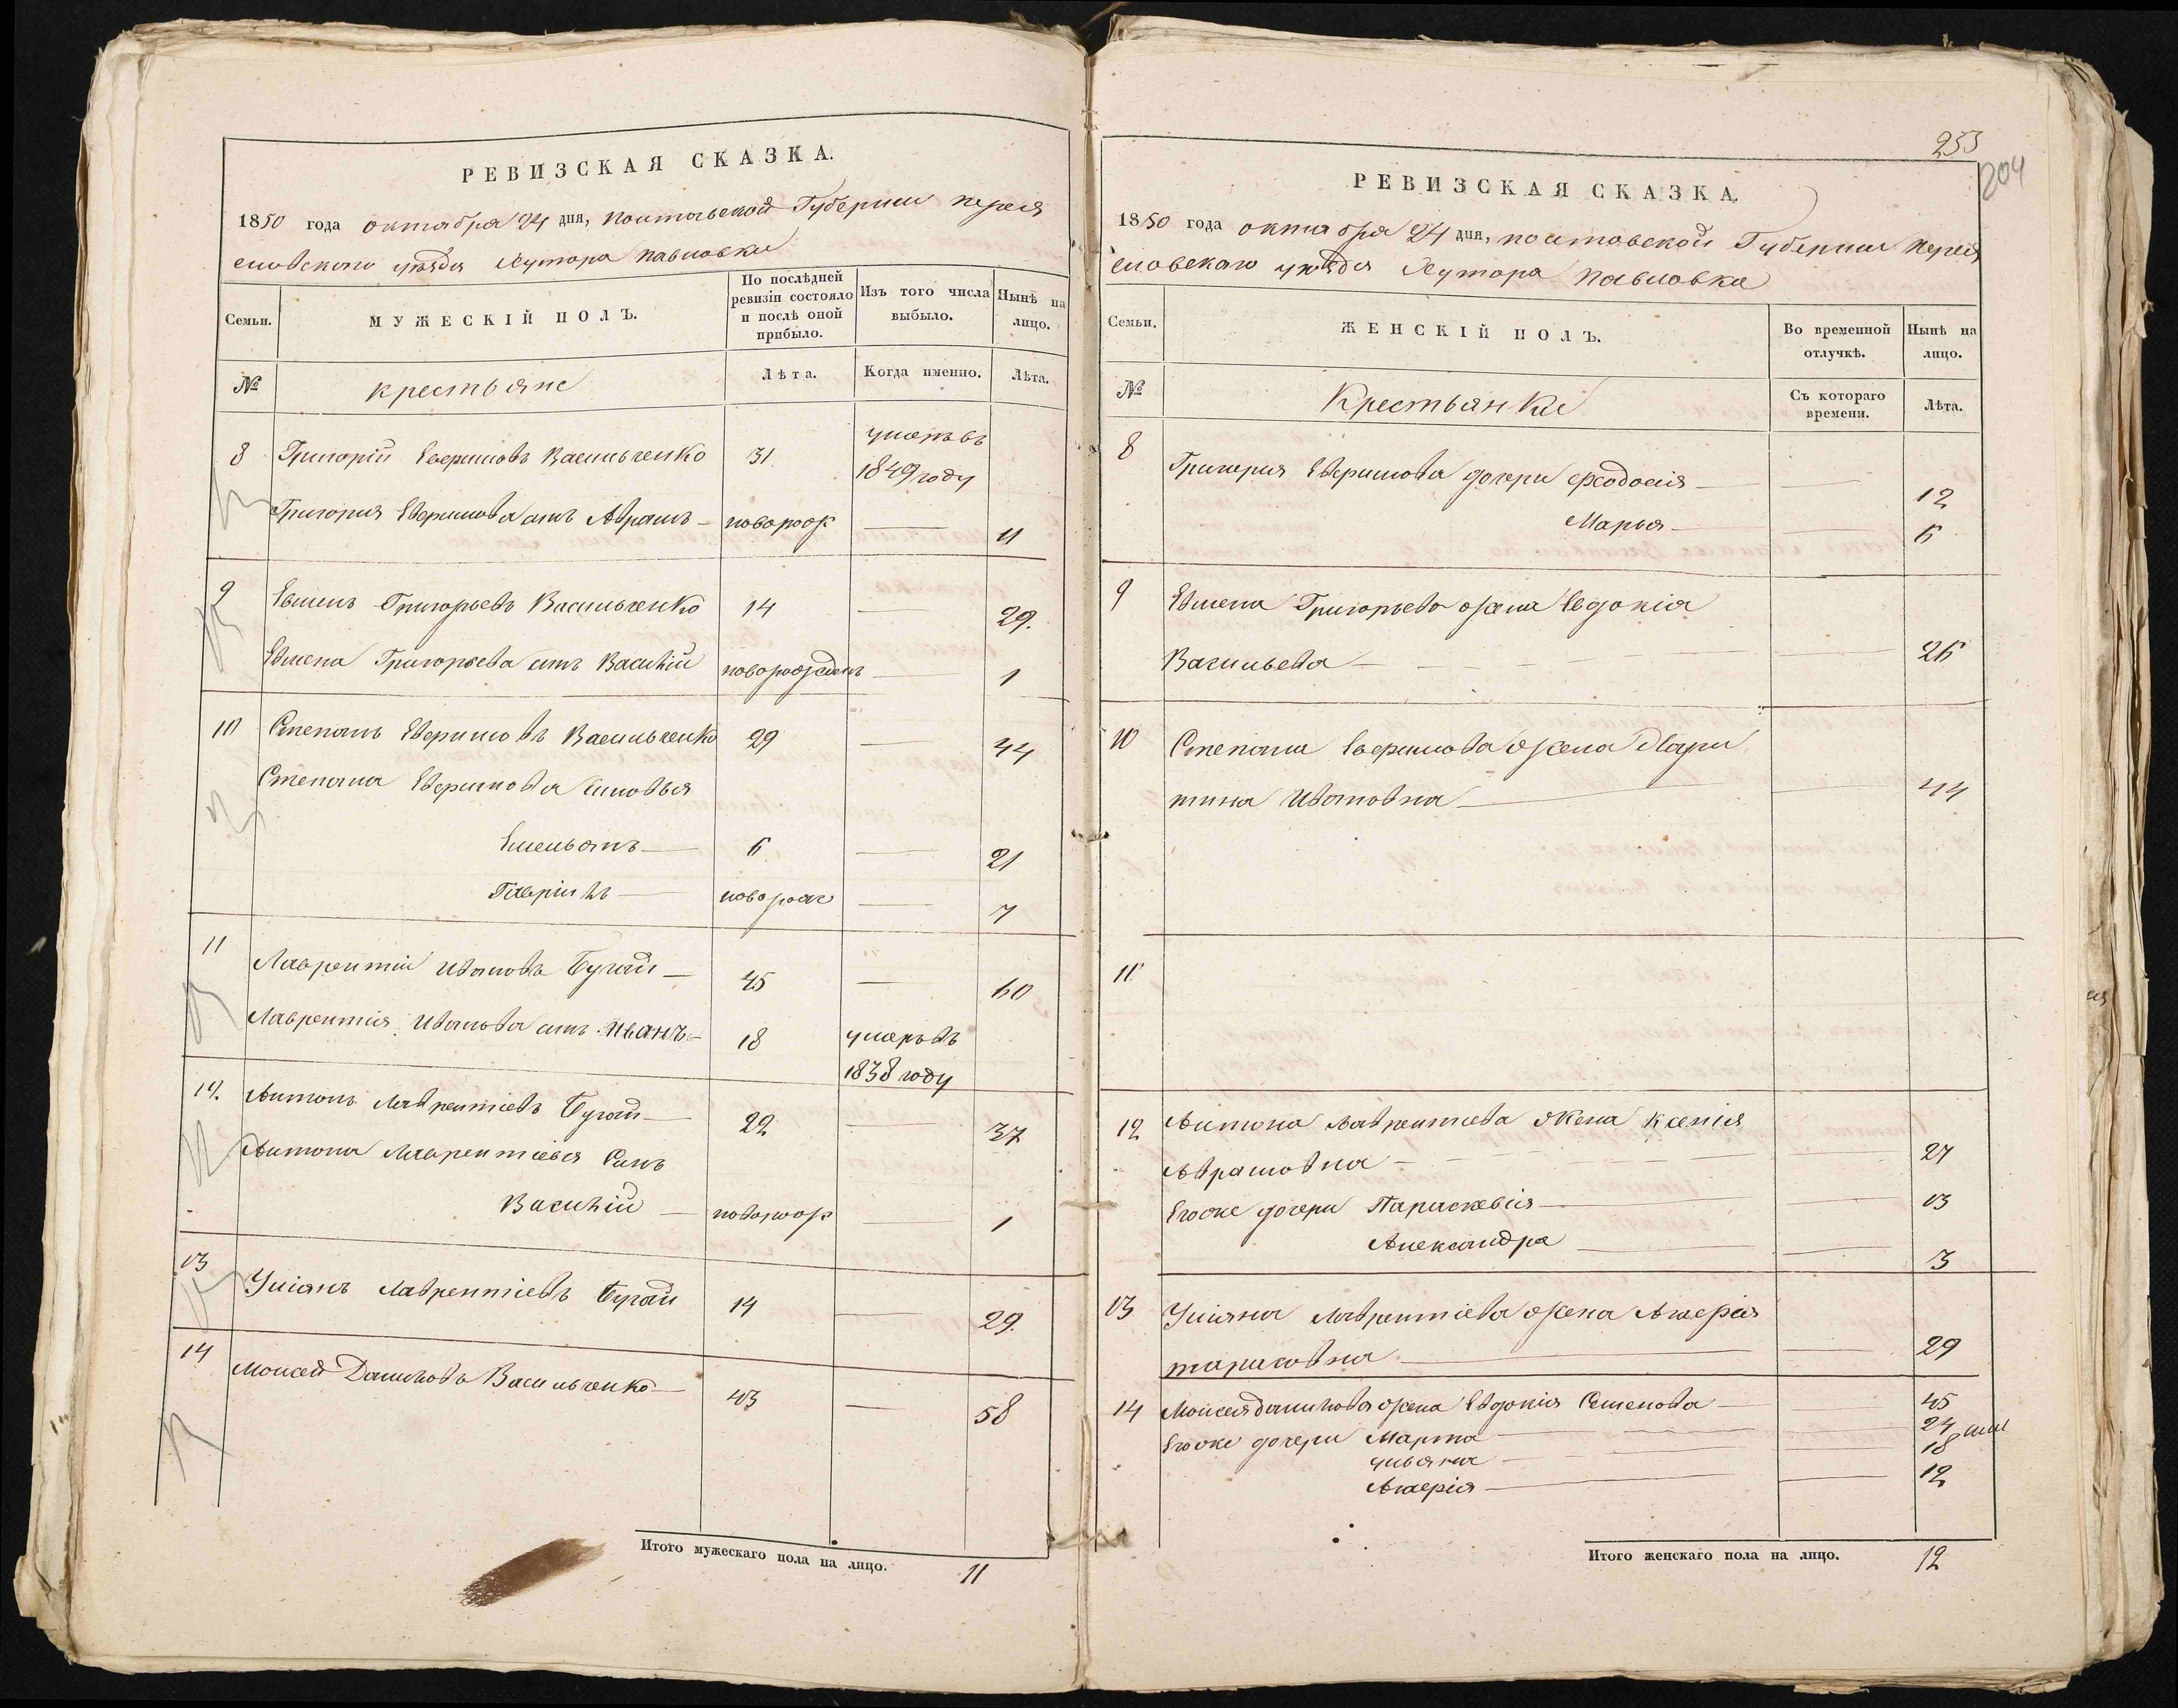 РЕВИЗСКАЯ СКАЗКА.
1850 года октября 24 дня, Полтавской Губернии перея
славского уѣзда Хутора Павловки
Семьи.
МУЖЕСКІЙ ПОЛЪ.
По послѣдней ревизіи состояло и послѣ оной прибыло.
Изъ того числа выбыло.
Нынѣ на лицо.
№
крестьяне
Лѣта.
Когда именно.
Лѣта.
8 Григорій Евфимовъ Васильченко 31 умеръ въ
1849 году
Григория Евфимова сынъ Абрамъ — новорож — 11
9 Евменъ Григорьевъ Васильченко 14 — 29.
Евмена Григорьева сынъ Василій новорожденъ — 1
10 Степанъ Евфимовъ Васильченко 29 — 44
Степана Евфимова сыновья
Емельянъ — 6 — 21
Гавріилъ — новорож — 7
11 Лаврентій Ивановъ Бугай — 45 — 60
Лаврентія Иванова сынъ Иванъ — 18 умеръ въ
1838 году
12. Антонъ Лаврентіевъ Бугай — 22 — 37
Антона Лаврентіевя Сынъ
Василій — новорож — 1
13 Уліянъ Лаврентіевъ Бугай 14 — 29.
14 Моисей Даниловъ Васильченко — 43 — 58
Итого мужескаго пола на лицо. 11
253
204
РЕВИЗСКАЯ СКАЗКА.
1850 года октября 24 дня, полтавской Губернии перея
славскаго уѣзда Хутора Павловки
Семьи.
ЖЕНСКІЙ ПОЛЪ.
Во временной отлучкѣ.
Нынѣ на лицо.
№
Крестьянки
Съ котораго времени.
Лѣта.
8 Григория Евфимова дочери Феодосія — — 12
Марья — — 6
9 Евмена Григорьева жена Евдокія
Васильева — — 26
10 Степана Евфимова жена Мари
тина Ивановна — — 44
11
12 Антона Лаврентіева жена Ксенія
Абрамовна — — 27
Егоже дочери Параскевія — — 13
Александра — — 3
13 Уліяна Лаврентіева жена
— — 29
14 Моисея Данилова жена Евдокія Семенова — 45
Егоже дочери Марта — 24
Ульяна — 18
— — 12
Итого женскаго пола на лицо. 12